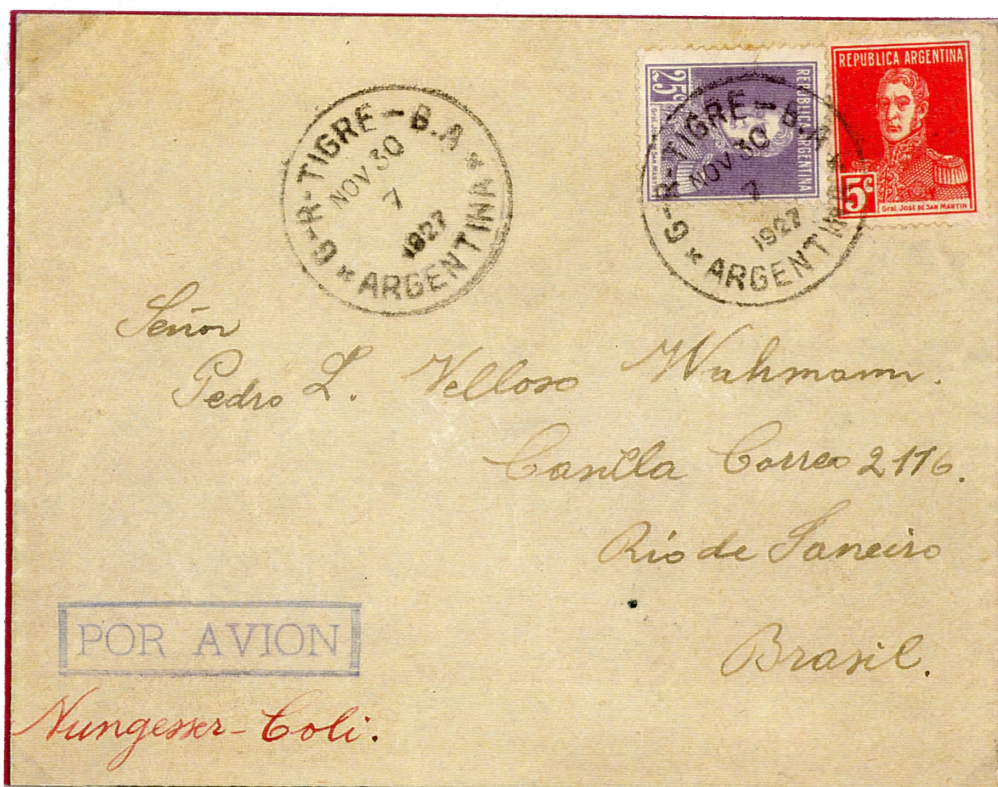 G-R-TIGRE-B.A * ARGENTINA *
NOV 30
7
1927
25c
REPUBLICA ARGENTINA
G-R-TIGRE-B.A * ARGENTINA
NOV 30
7
1927
REPUBLICA ARGENTINA
5c
Gral. José de San Martin
Señor
Pedro L. Velloso Wuhmann.
Casilla Correo 2176.
Río de Janeiro
Brasil.
POR AVION
Nungesser-Coli.